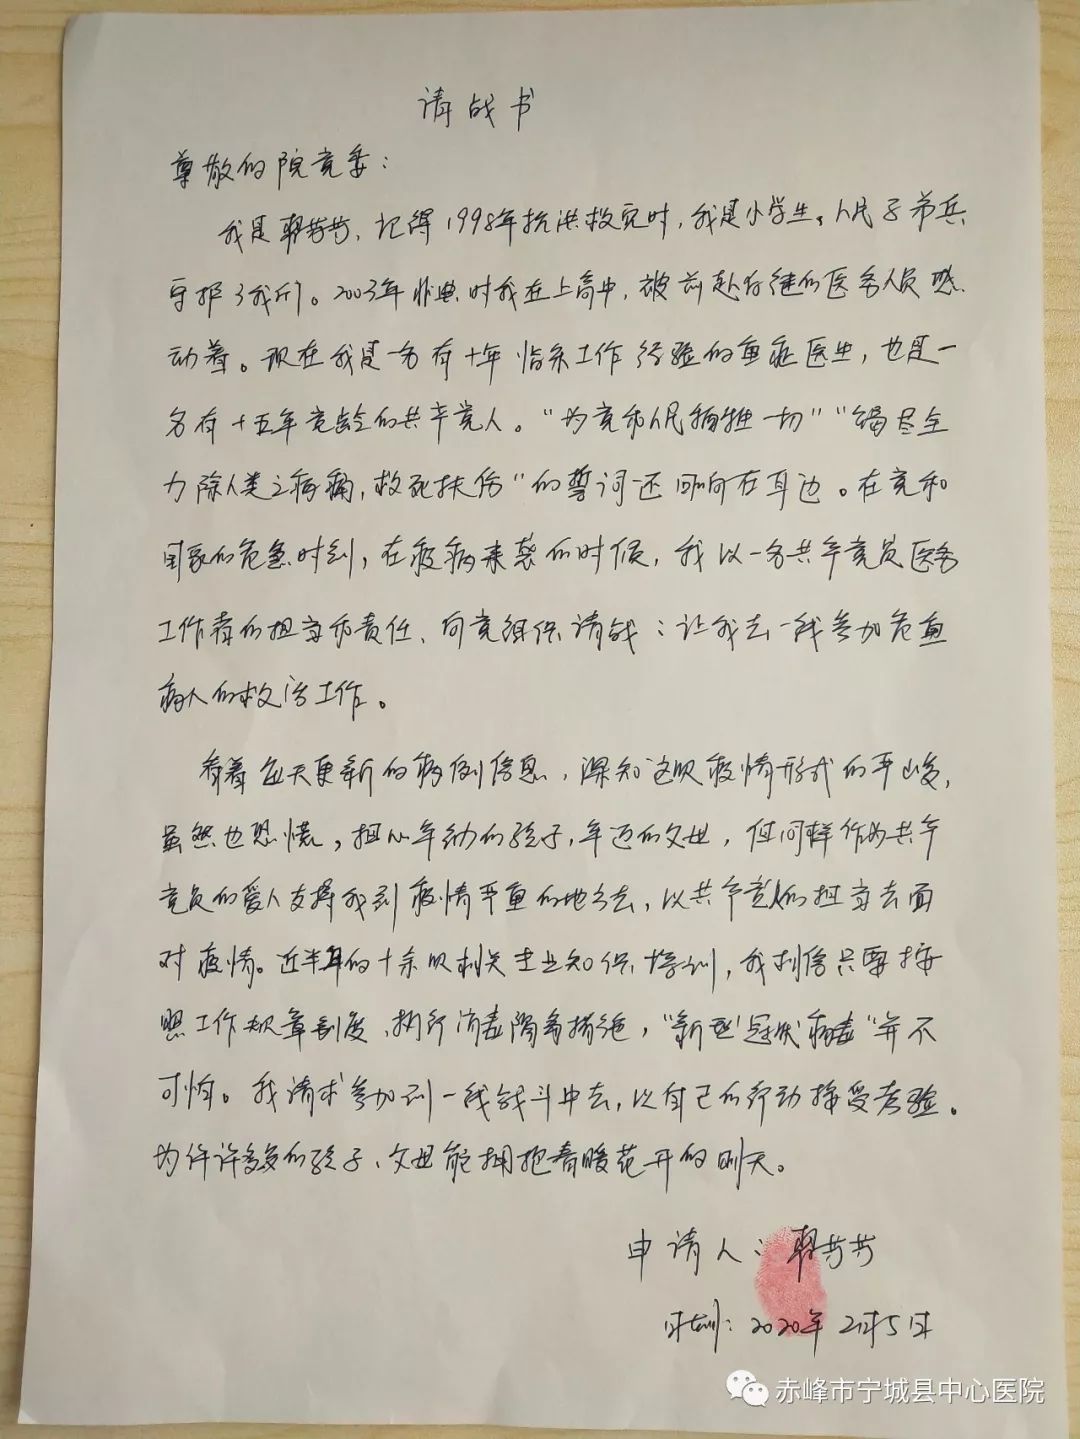 请战书
尊敬的院党委：
我是翟芳芳，记得1998年抗洪救灾时，我是小学生，人民子弟兵
守护了我们。2003年非典时我在上高中，被前赴后继的医务人员感
动着。现在我是一名有十年临床工作经验的重症医生，也是一
名有十五年党龄的共产党人。“为党和人民牺牲一切”“竭尽全
力除人类之病痛，救死扶伤”的誓词还回响在耳边。在党和
国家的危急时刻，在疫病来袭的时候，我以一名共产党员医务
工作者的担当和责任、向党组织请战：让我去一线参加危重
病人的救治工作。
看着每天更新的病例信息，深知这次疫情形式的严峻，
虽然也恐慌，担心年幼的孩子，年迈的父母，但同样作为共产
党员的爱人支持我到疫情严重的地方去，以共产党人的担当去面
对疫情。近半年的十余次相关专业知识培训，我相信只要按
照工作规章制度、执行消毒隔离措施，“新型冠状病毒”并不
可怕。我请求参加到一线战斗中去，以自己的行动接受考验。
为许许多多的孩子、父母能拥抱春暖花开的明天。
申请人：翟芳芳
时间：2020年2月5日
赤峰市宁城县中心医院